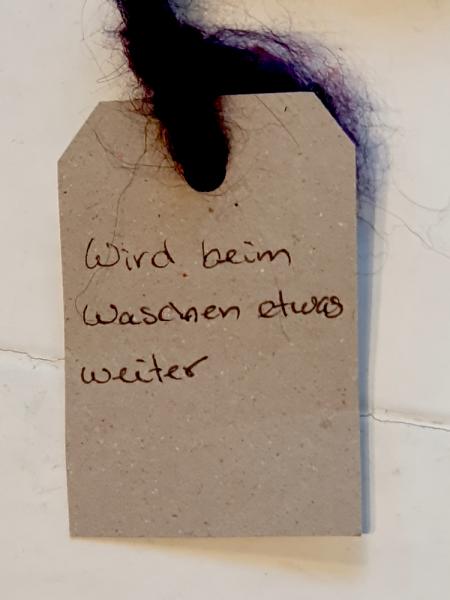 Wird beim
waschen etwas
weiter